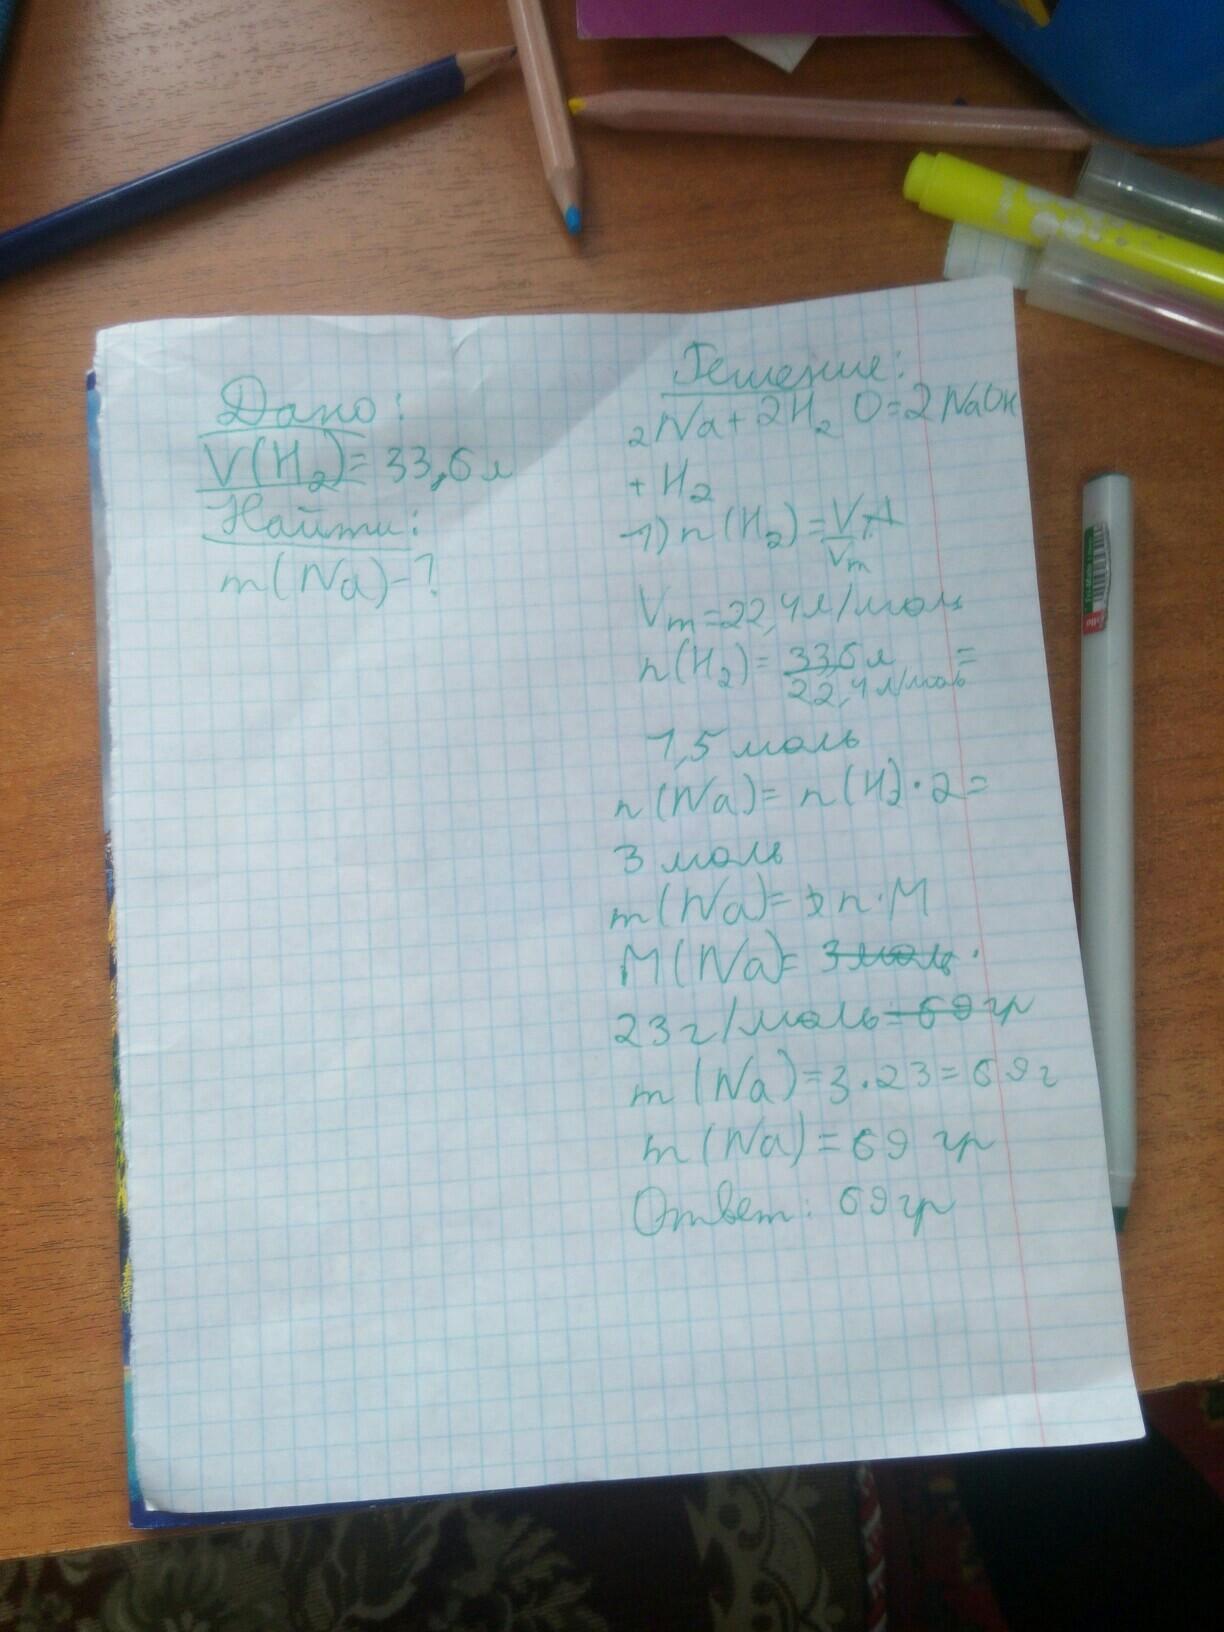 Дано:
V(H2)= 33,6 л
Найти:
m(Na)-?
Решение:
2Na+2H2O=2NaOH
+H2
1) n(H2)=V/Vm
Vm=22,4л/моль
n(H2)= 33,6 л / 22,4 л/моль =
1,5 моль
n(Na)= n(H2)·2=
3 моль
m(Na)= n·M
M(Na)= 3 моль ·
23 г/моль = 69 гр
m(Na)=3·23=69г
m(Na)=69 гр
Ответ: 69 гр